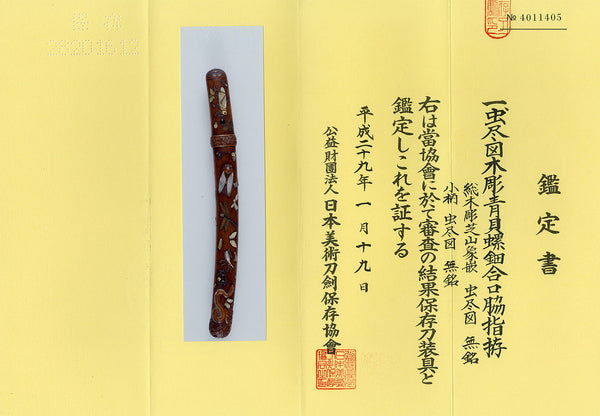 № 4011405
鑑定書
一、虫尽図木彫青貝螺鈿合口脇指拵
総木彫芝山象嵌 虫尽図 無銘
小柄 虫尽図 無銘
右は當協會に於て審査の結果保存刀装具と
鑑定しこれを証する
平成二十九年一月十九日
公益財團法人 日本美術刀劍保存協會